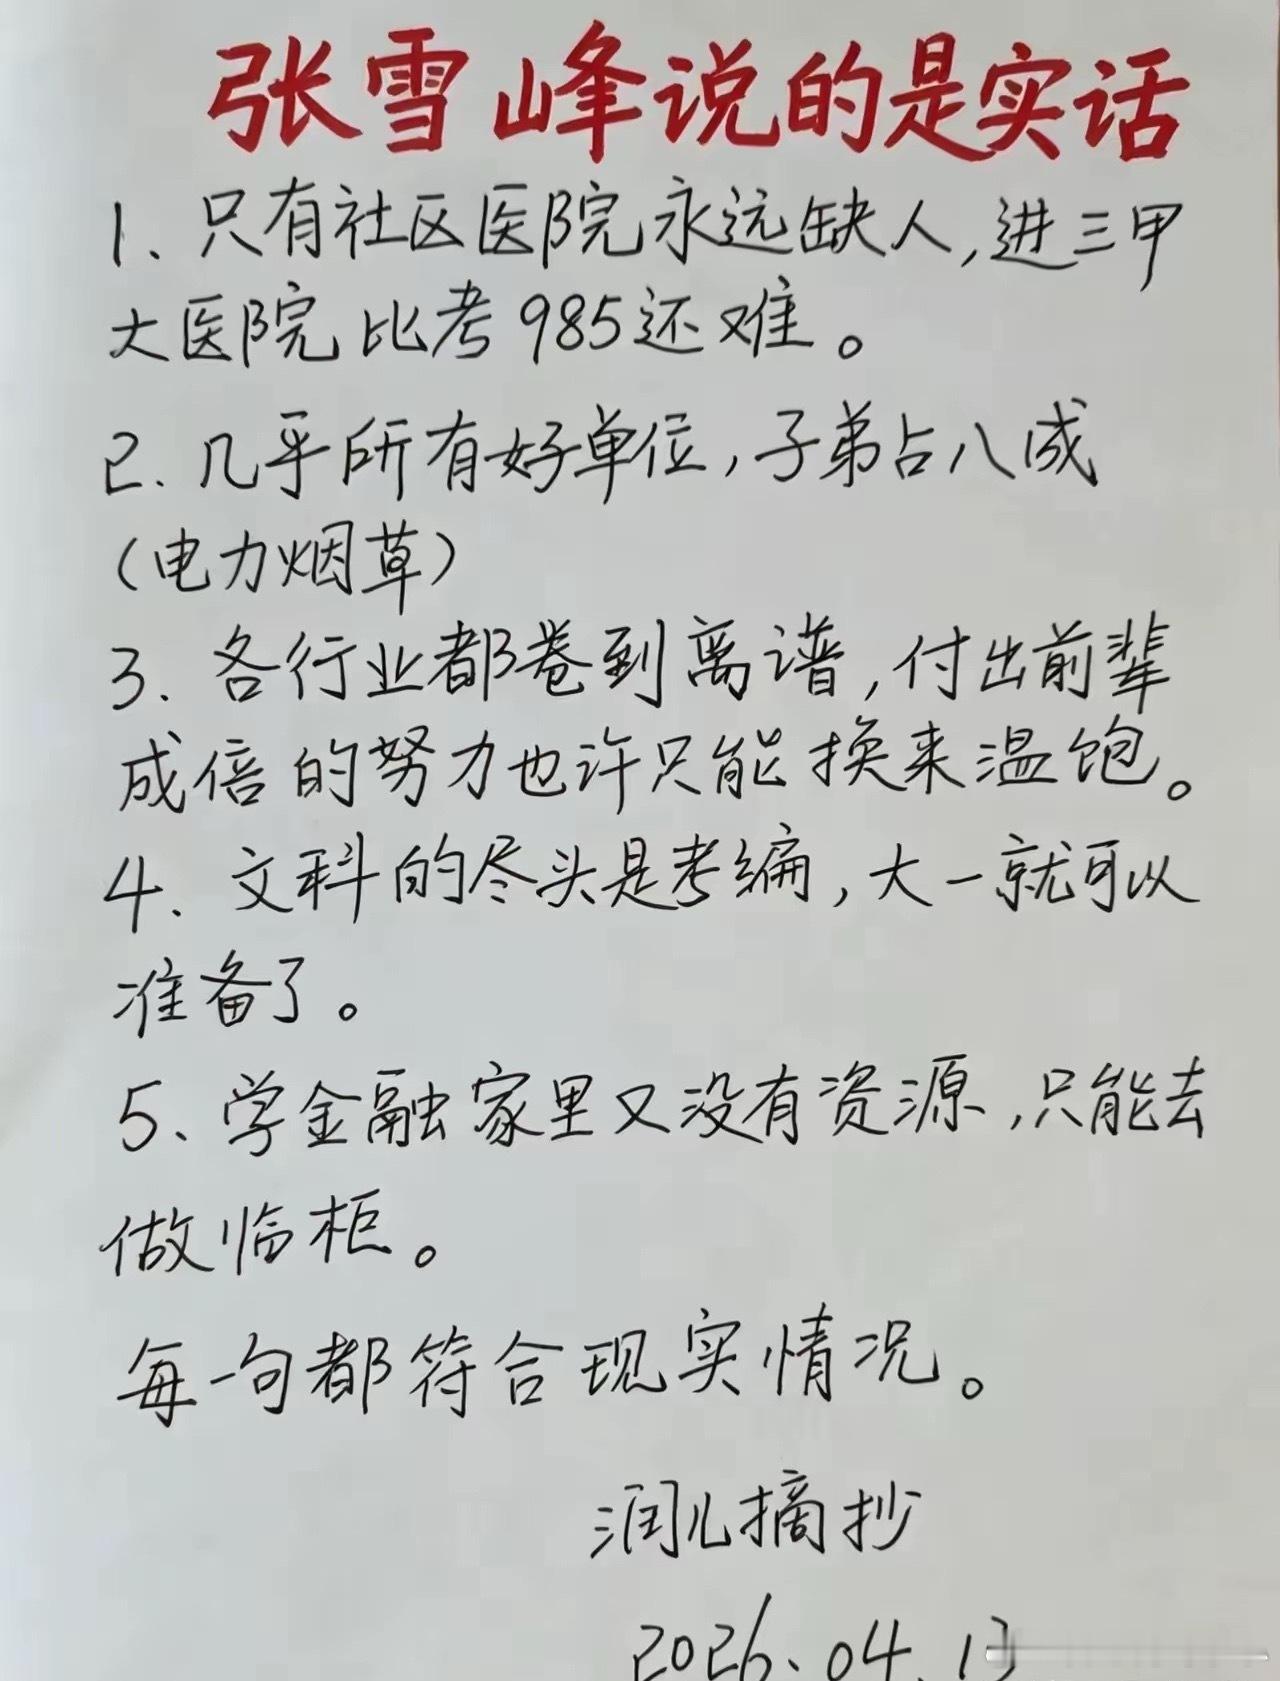 张雪峰说的是实话
1、只有社区医院永远缺人,进三甲
大医院比考985还难。
2、几乎所有好单位,子弟占八成
(电力烟草)
3、各行业都卷到离谱,付出前辈
成倍的努力也许只能换来温饱。
4、文科的尽头是考编,大一就可以
准备了。
5、学金融家里又没有资源,只能去
做临柜。
每一句都符合现实情况。
润儿摘抄
2026.04.13